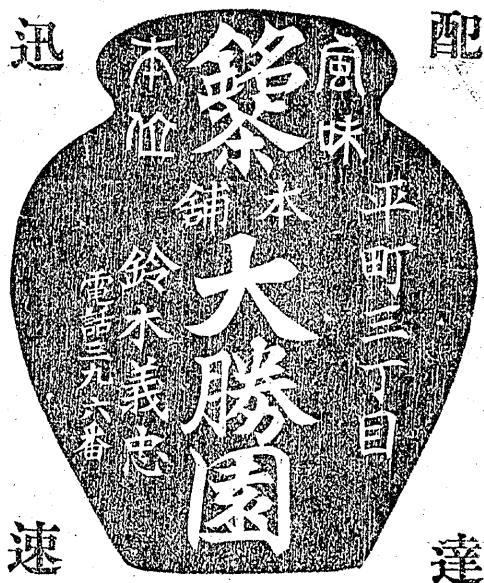 配達
迅速
風味
本位
銘茶
本舗
大勝園
平町三丁目
鈴木義忠
電話三九六番